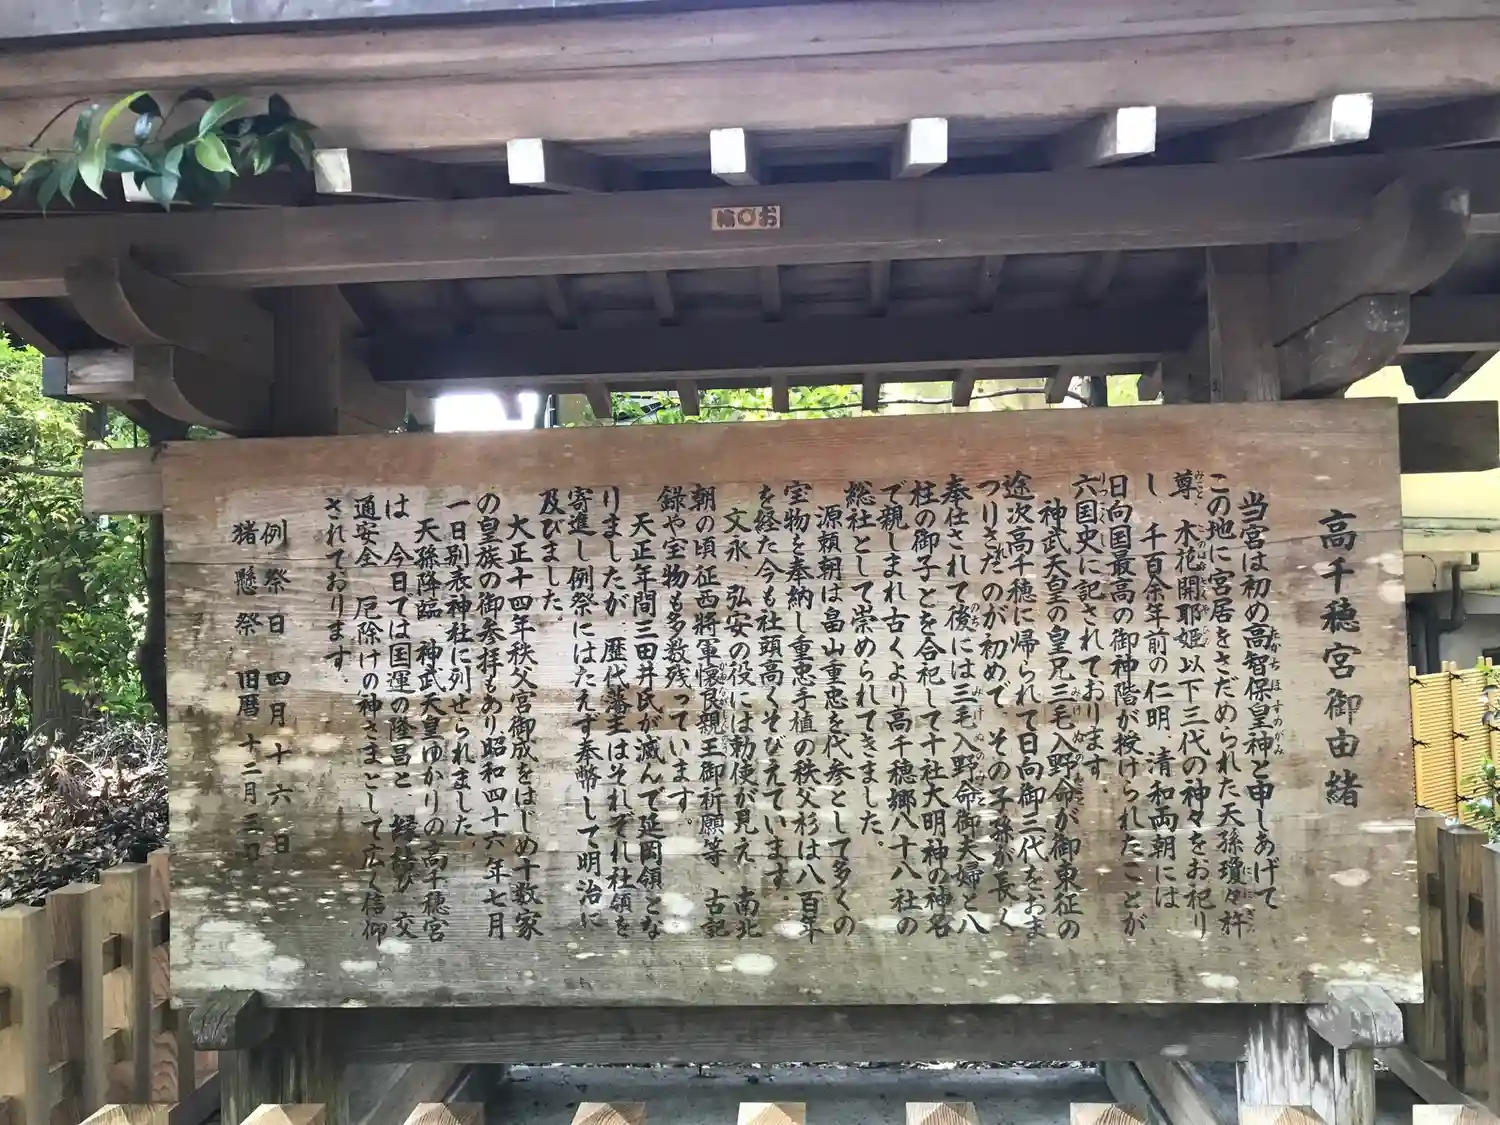 高千穂宮御由緒
当宮は初め高智保皇神と申しあげて
この地に宮居をさだめられた天孫瓊々杵
尊 木花開耶姫以下三代の神々をお祀り
し 千百余年前の仁明 清和両朝には
日向国最高の御神階が授けられたことが
六国史に記されております。
神武天皇の皇兄三毛入野命が御東征の
途次高千穂に帰られて日向御三代をおま
つりさだのが初めで、その子孫が長く
奉仕されて後には三毛入野命御夫婦と八
柱の御子とを合祀して十社大明神の神名
で親しまれ古くより高千穂郷八十八社の
総社として崇められてきました。
源頼朝は畠山重忠を代参として多くの
宝物を奉納し重忠手植の秩父杉は八百年
を経た今も社頭高くそびえています。
文永 弘安の役には勅使が見え 南北
朝の頃征西将軍懐良親王御祈願等、古記
録や宝物も多数残っています。
天正年間三田井氏が滅んで延岡領とな
りましたが、歴代藩主はそれぞれ社領を
寄進し例祭にはたえず奉幣して明治に
及びました。
大正十四年秩父宮御成をはじめ十数家
の皇族の御参拝もあり昭和四十六年七月
一日別表神社に列せられました。
天孫降臨 神武天皇ゆかりの高千穂宮
は 今日では国運の隆昌と 縁結び 交
通安全 厄除けの神さまとして広く信仰
されております。
例祭日 四月十六日
猪懸祭 旧暦十二月三日